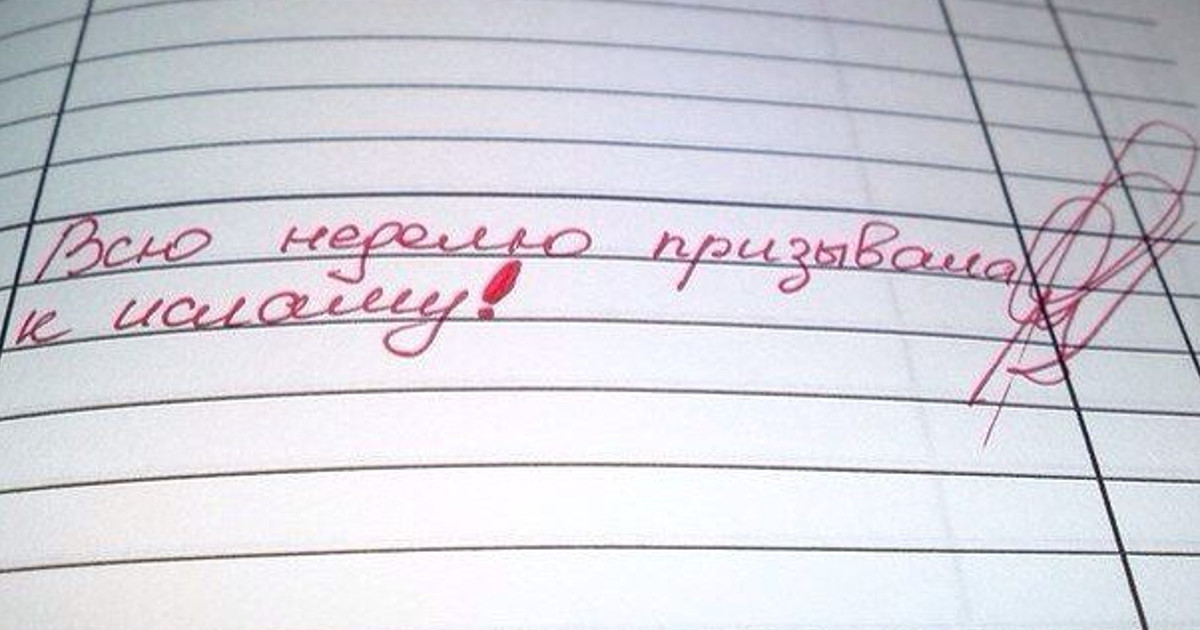 Всю неделю призывала
к исламу!